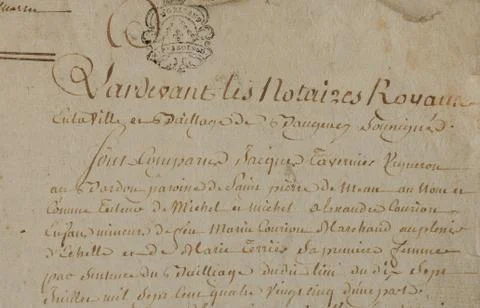 Pardevant les Notaires Royaux
En la Ville et Bailliage de Baugency Soussignés.
Sont Comparus Jacques Tavernier Vigneron
au Bardon paroisse de Saint pierre de Meun au Nom et
Comme tuteur de Michel et michel alexandre Couriou
Enfans mineurs de feu Marie Couriou Marchand
et de Marie sa premiere femme
par Sentence du Bailliage dudit lieu du dix Sept
Juillet mil Sept Cent quatre vingt cinq d'une part.